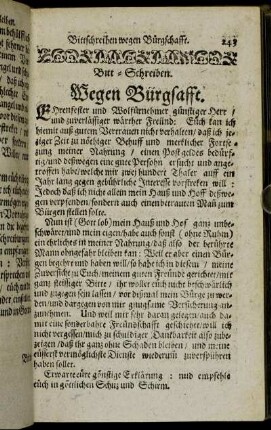 Bittschreiben wegen Bürgschafft. 243
Bitt-Schreiben.
Wegen Bürgsafft.
Ehrenfester und Wolfürnehmer günstiger Herr /
und zuverlässiger wärther Freünd: Eüch kan ich
hiemit auß gutem Vertrauen nicht verhalten / daß ich je-
ziger Zeit zu nöhtiger Behuff und mercklicher Fortse-
zung meiner Nahrung / einen Post geldes bedürf-
tig / und deßwegen eine gute Persohn ersucht und ange-
troffen habe / welche mir zwey hundert Thaler auff ein
Jahr lang gegen gebührliche Interesse vorstrecken will :
Jedoch daß ich nicht allein mein Hauß und Hoff deßwe-
gen verpfenden / sondern auch einen vertrauten Mañ zum
Bürgen stellen solte.
Nun ist (Gott lob) mein Hauß und Hof ganz unbe-
schwäret / und mein eigen / habe auch sonst (ohne Ruhm)
ein ehrliches in meiner Nahrung / daß also der berührte
Mann ohngefahr bleiben kan : Weil er aber einen Bür-
gen begehrt und haben will / so habe ich in diesem / meine
Zuversicht zu Eüch / meinem guten Freünde gerichtet / mit
ganz fleissiger Bitte / ihr wollet eüch nicht beschwärlich
und zugegen sein lassen / vor dißmal mein Bürg zu wer-
den / und dargegen von mir gnugsame Versicherung an-
zunehmen. Und weil mir sehr daran gelegen / auch da-
mit eine sonderbahre Freündschafft geschiehet / will ich
nicht vergessen / mich zu schuldiger Danckbarkeit also zube-
zeigen / daß ihr ganz ohne Schaden bleiben / und meine
eüsserst vermöglichste Dienste wiederum̃ zuverspühren
haben sollet.
Erwarte eüre günstige Erklärung : und empfehle
eüch in göttlichen Schuz und Schirm.